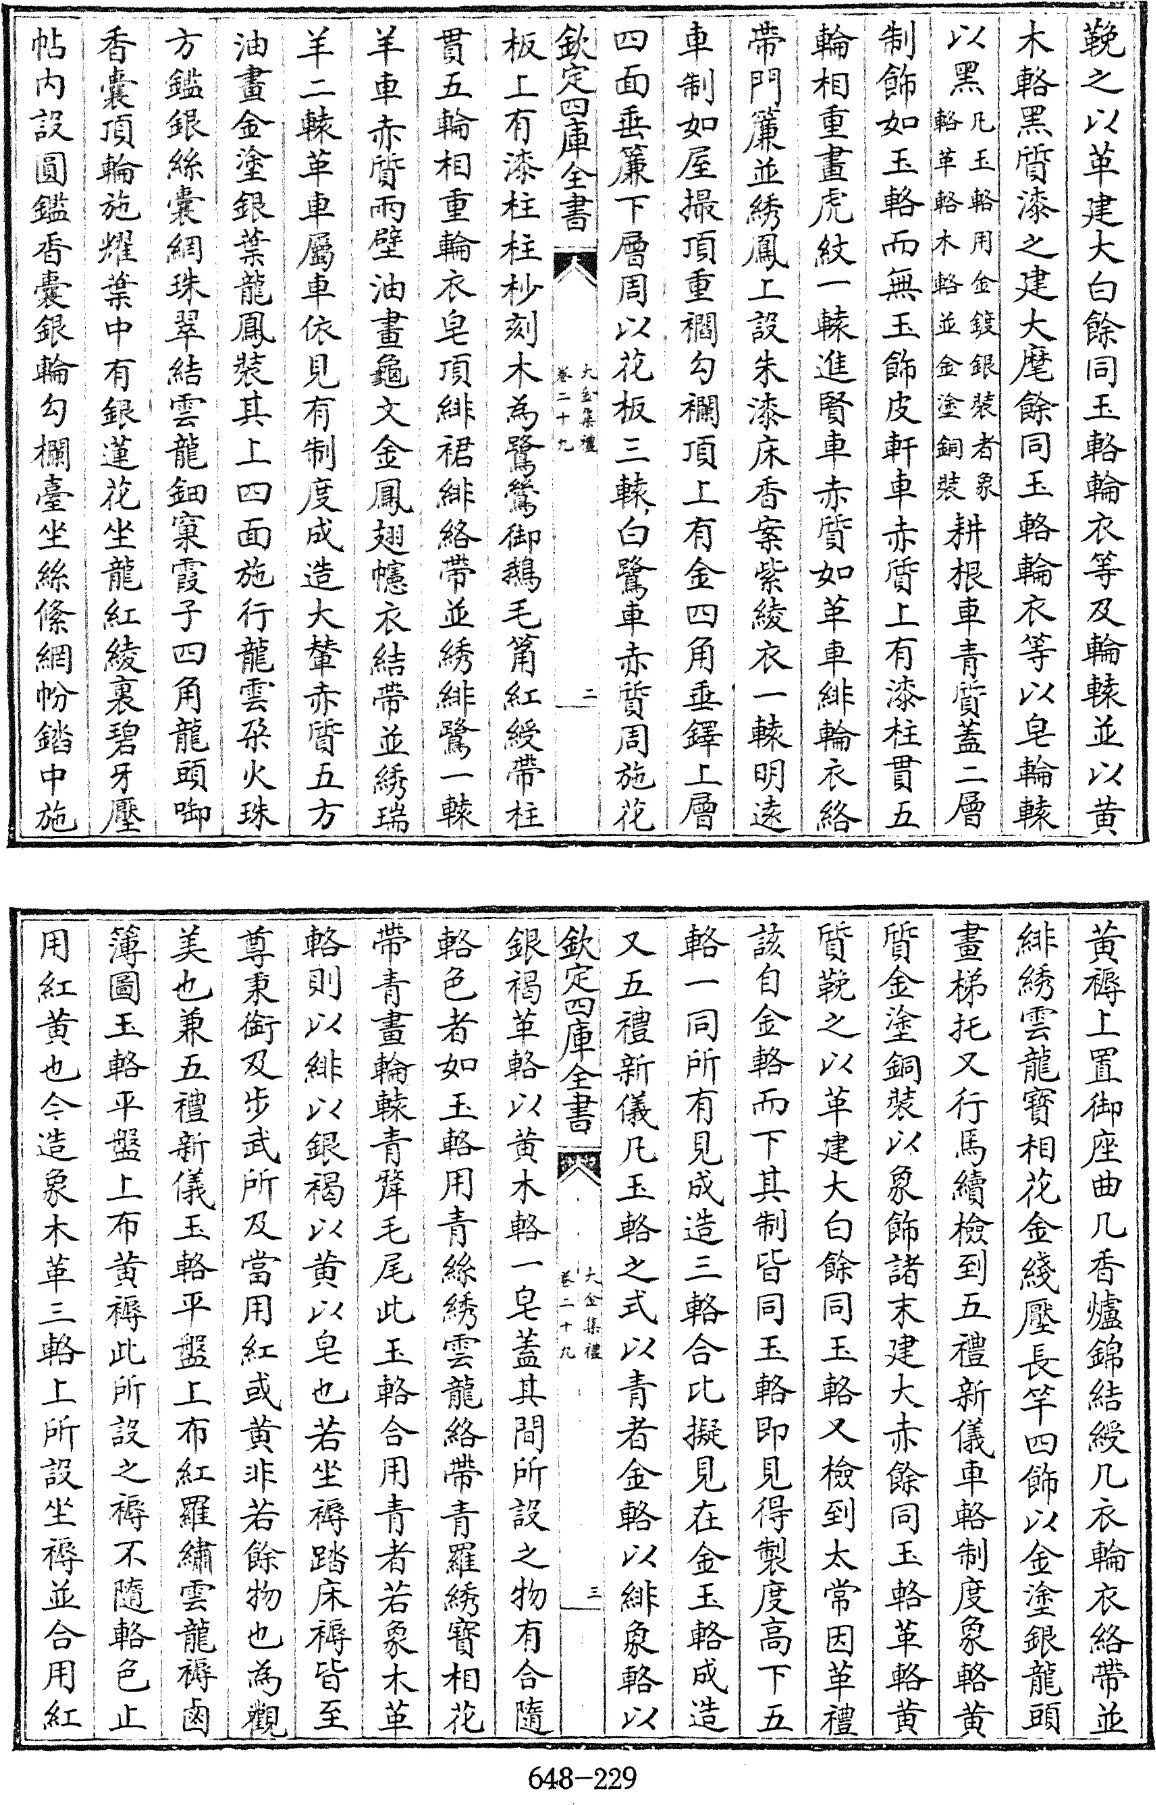 鞔之以革建大白餘同玉輅輪衣等及輪轅並以黄
木輅黑質漆之建大麾餘同玉輅輪衣等以皂輪轅
以黑凡玉輅用金鍍銀裝者象輅革輅木輅並金塗銅裝耕根車青質蓋二層
制飾如玉輅而無玉飾皮軒車赤質上有漆柱貫五
輪相重畫虎紋一轅進賢車赤質如革車緋輪衣絡
帶門簾並綉鳳上設朱漆床香案紫綾衣一轅明遠
車制如屋撮頂重櫩勾襴頂上有金四角垂鐸上層
四面垂簾下層周以花板三轅白鷺車赤質周施花
欽定四庫全書
大金集禮
卷二十九
二
板上有漆柱柱杪刻木為鷺鷥御鵝毛筩紅綬帶柱
貫五輪相重輪衣皂頂緋裙緋絡帶並綉緋鷺一轅
羊車赤質兩壁油畫龜文金鳳翅幰衣結帶並綉瑞
羊二轅革車屬車依見有制度成造大輦赤質五方
油畫金塗銀葉龍鳳裝其上四面施行龍雲朶火珠
方鑑銀絲囊網珠翠結雲龍鈿窠霞子四角龍頭啣
香囊頂輪施耀葉中有銀蓮花坐龍紅綾裏碧牙壓
帖内設圓鑑香囊銀輪勾欄臺坐絲絛網帉錔中施
黄褥上置御座曲几香爐錦結綬几衣輪衣絡帶並
緋綉雲龍寳相花金綫壓長竿四飾以金塗銀龍頭
畫梯托叉行馬續檢到五禮新儀車輅制度象輅黄
質金塗銅裝以象飾諸末建大赤餘同玉輅革輅黄
質鞔之以革建大白餘同玉輅又檢到太常因革禮
該自金輅而下其制皆同玉輅即見得製度高下五
輅一同所有見成造三輅合比擬見在金玉輅成造
又五禮新儀凡玉輅之式以青者金輅以緋象輅以
欽定四庫全書
大金集禮
卷二十九
三
銀褐革輅以黄木輅一皂蓋其間所設之物有合隨
輅色者如玉輅用青絲綉雲龍絡帶青羅綉寳相花
帶青畫輪轅青犛毛尾此玉輅合用青者若象木革
輅則以緋以銀褐以黄以皂也若坐褥踏床褥皆至
尊秉銜及步武所及當用紅或黄非若餘物也為觀
美也兼五禮新儀玉輅平盤上布紅羅繡雲龍褥鹵
簿圖玉輅平盤上布黄褥此所設之褥不隨輅色止
用紅黄也今造象木革三輅上所設坐褥並合用紅
648-229